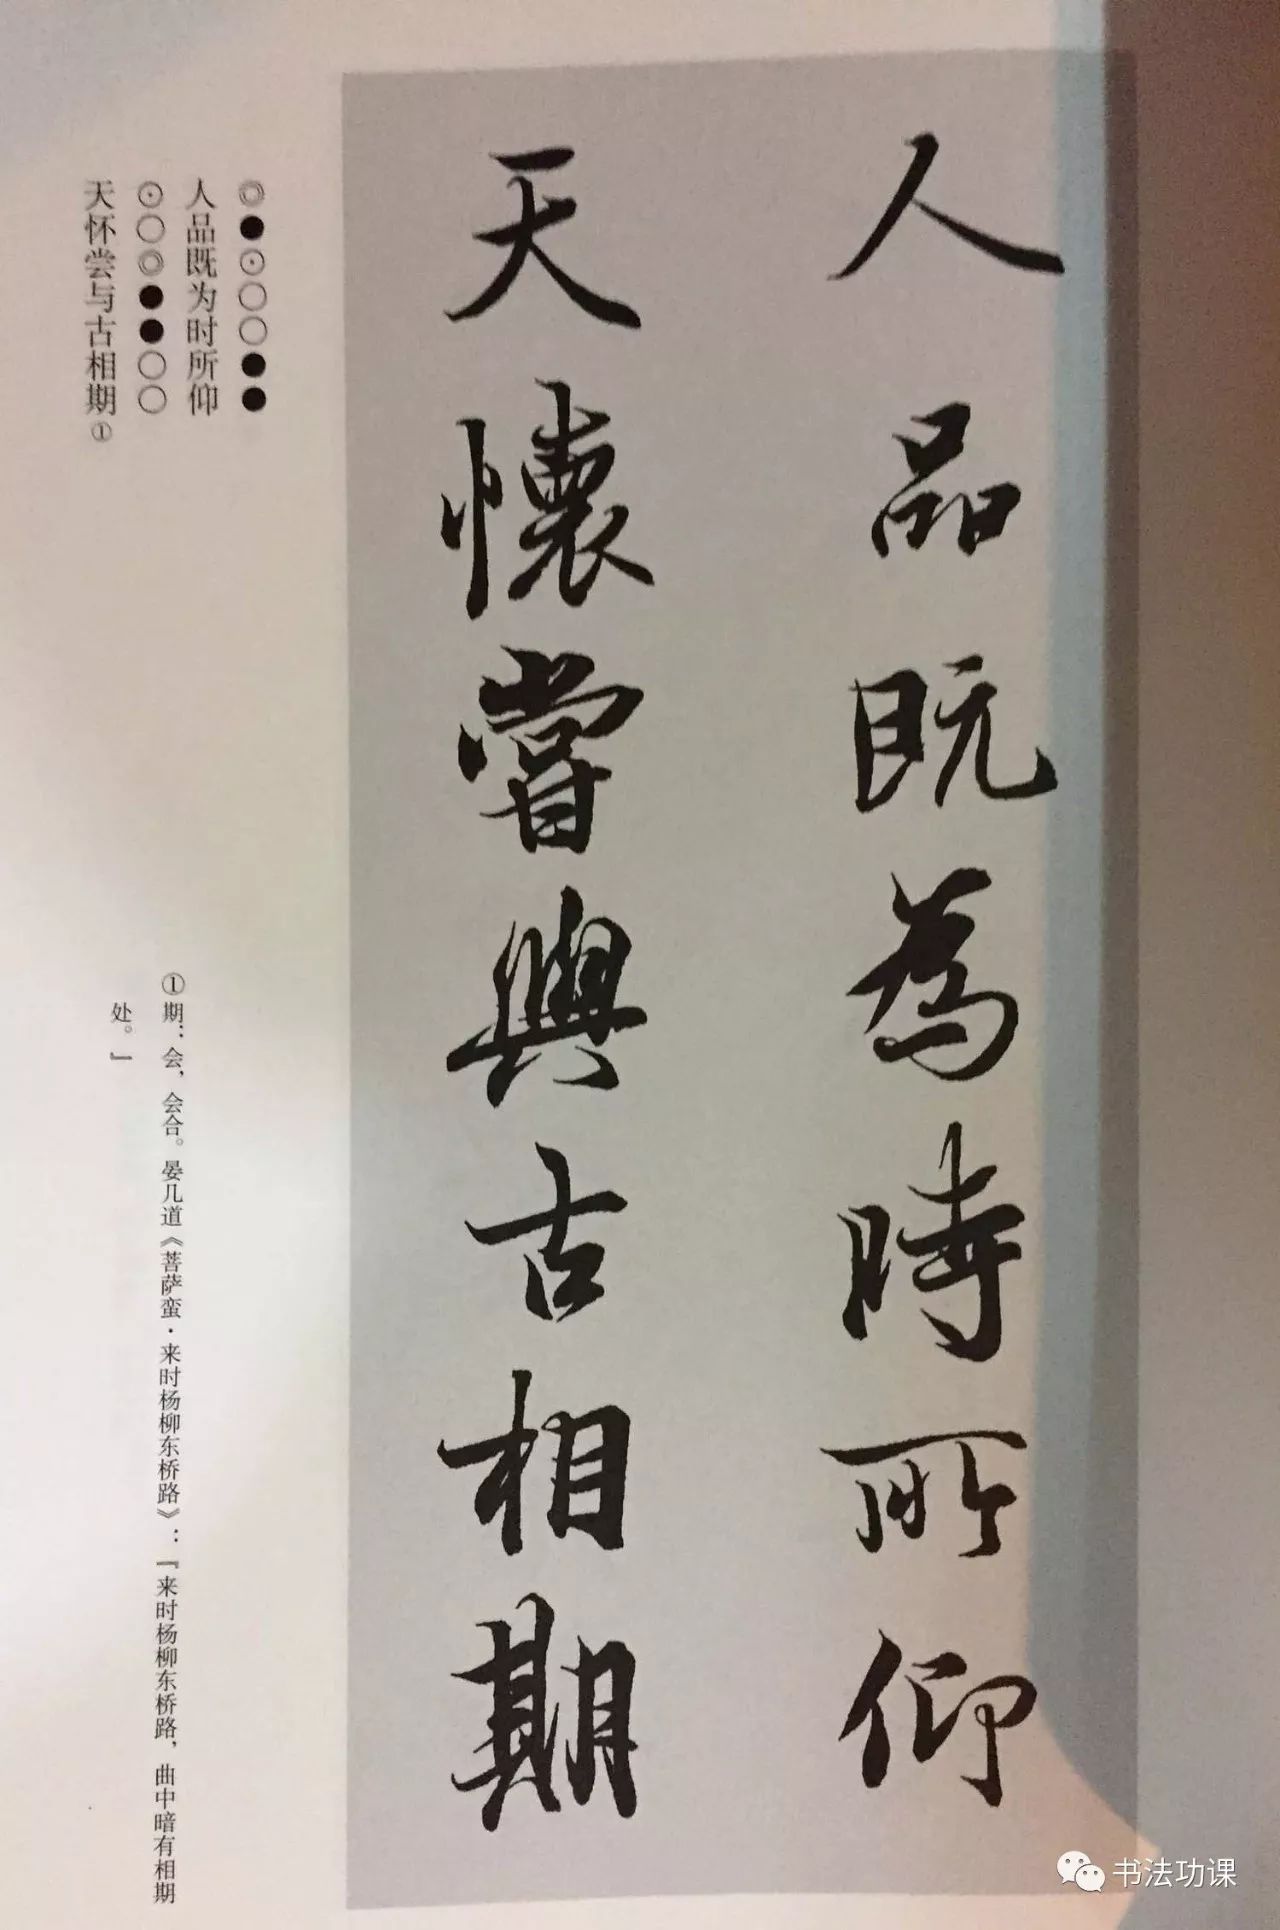 人品既為時所仰
天懷嘗與古相期
◎●⊙○○●●
人品既为时所仰
⊙○◎●●○○
天怀尝与古相期①
①期：会，会合。晏几道《菩萨蛮·来时杨柳东桥路》：『来时杨柳东桥路，曲中暗有相期
处。』
书法功课